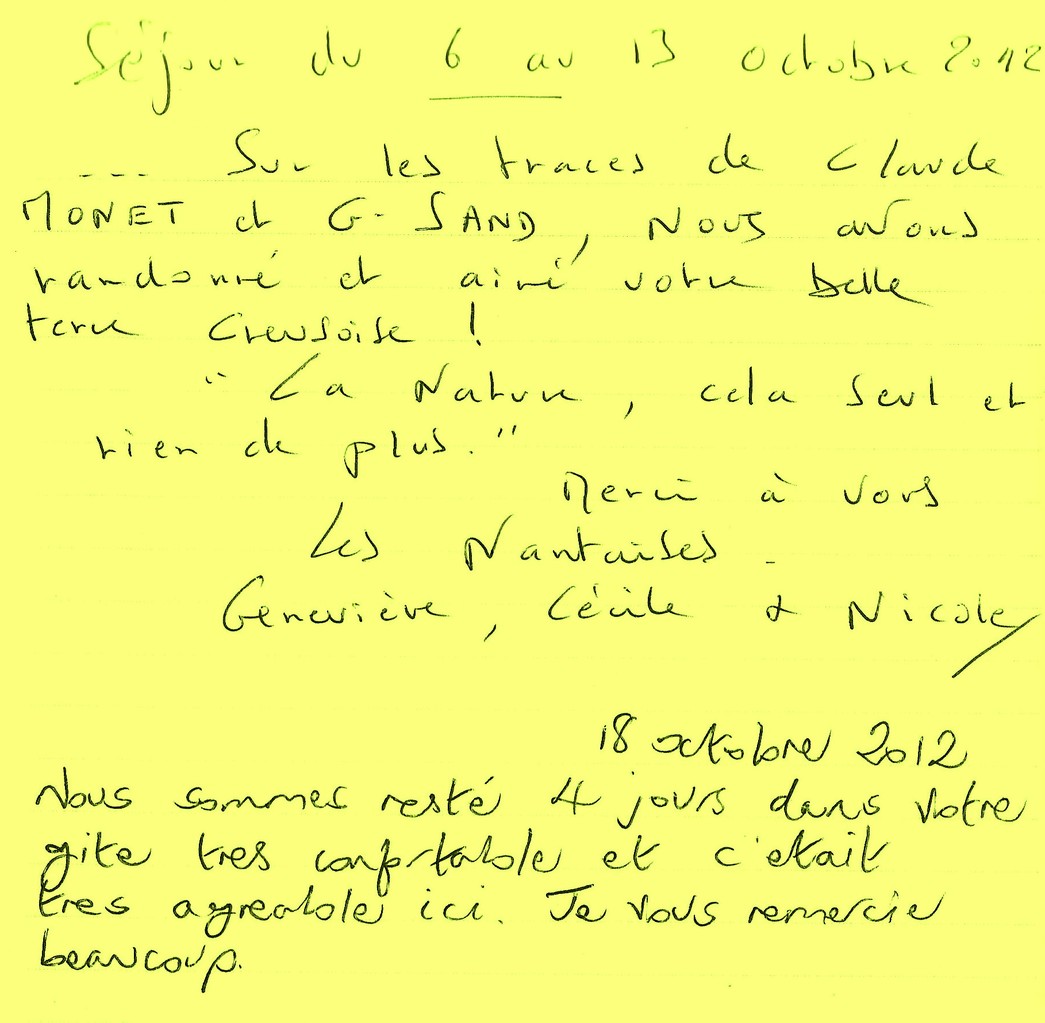 Séjour du 6 au 13 octobre 2012
--- Sur les traces de Claude
MONET et G. SAND, NOUS avons
randonné et aimé votre belle
terre Creusoise !
" La Nature, cela seul et
rien de plus. "
Merci à vous
Les Nantaises.
Geneviève, Cécile & Nicole
18 octobre 2012
Nous sommes resté 4 jours dans votre
gite tres confortable et c'etait
tres agreable ici. Je vous remercie
beaucoup.